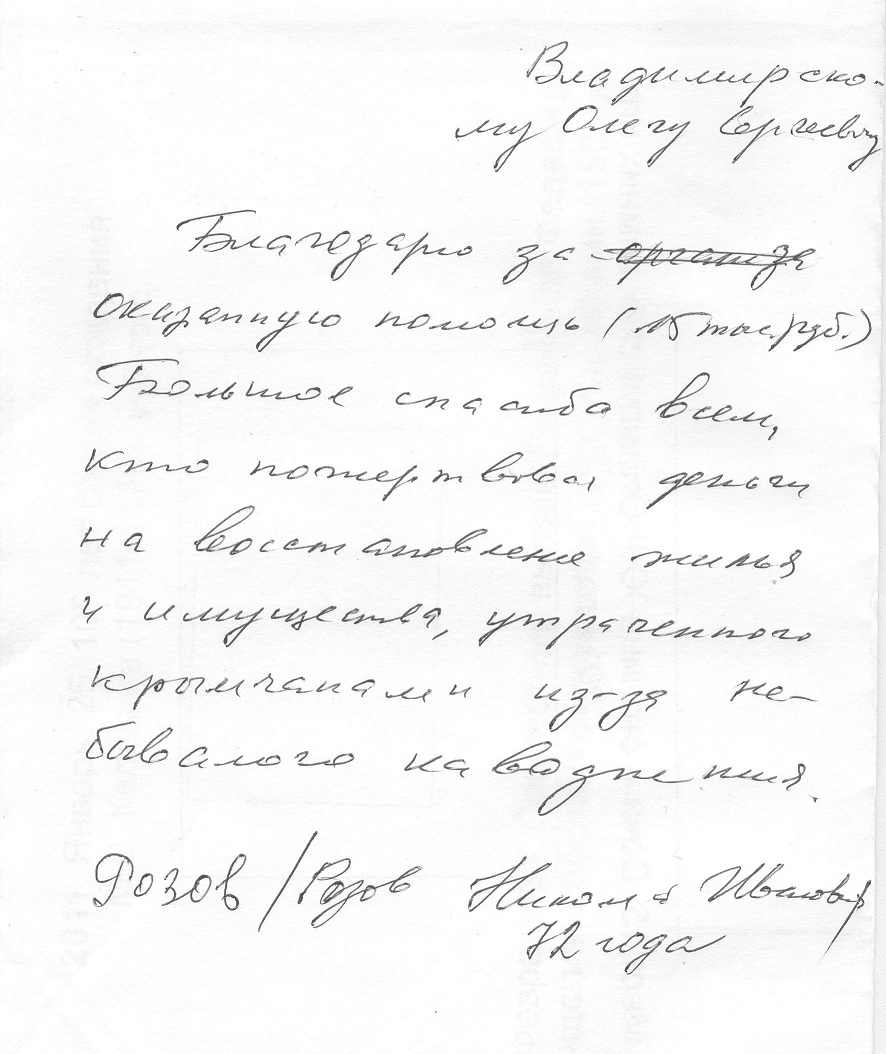 Владимирско-
му Олегу Сергеевичу
Благодарю за организа
оказанную помощь (15 тыс. руб.)
Большое спасибо всем,
кто пожертвовал деньги
на восстановление жилья
и имущества, утраченного
крымчанами из-за не-
бывалого наводнения.
Розов / Розов Николай Иванович
72 года